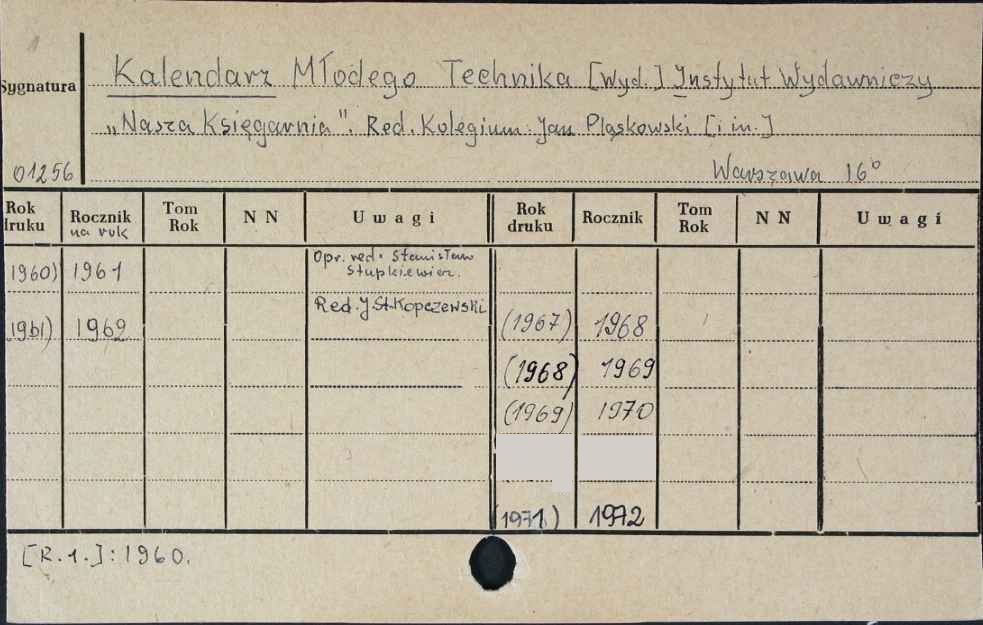 1
Sygnatura
Kalendarz Młodego Technika [Wyd.] Instytut Wydawniczy
„Nasza Księgarnia". Red. Kolegium: Jan Pląskowski [i in.]
01256 Warszawa 16°
Rok druku Rocznik na rok Tom Rok N N Uwagi Rok druku Rocznik Tom Rok N N Uwagi
1960) 1961 Opr. red. Stanisław
Stupkiewicz.
Red. J. St. Kopczewski
1961) 1962 (1967) 1968
(1968) 1969
(1969) 1970
(1971) 1972
[R. 1.]: 1960.